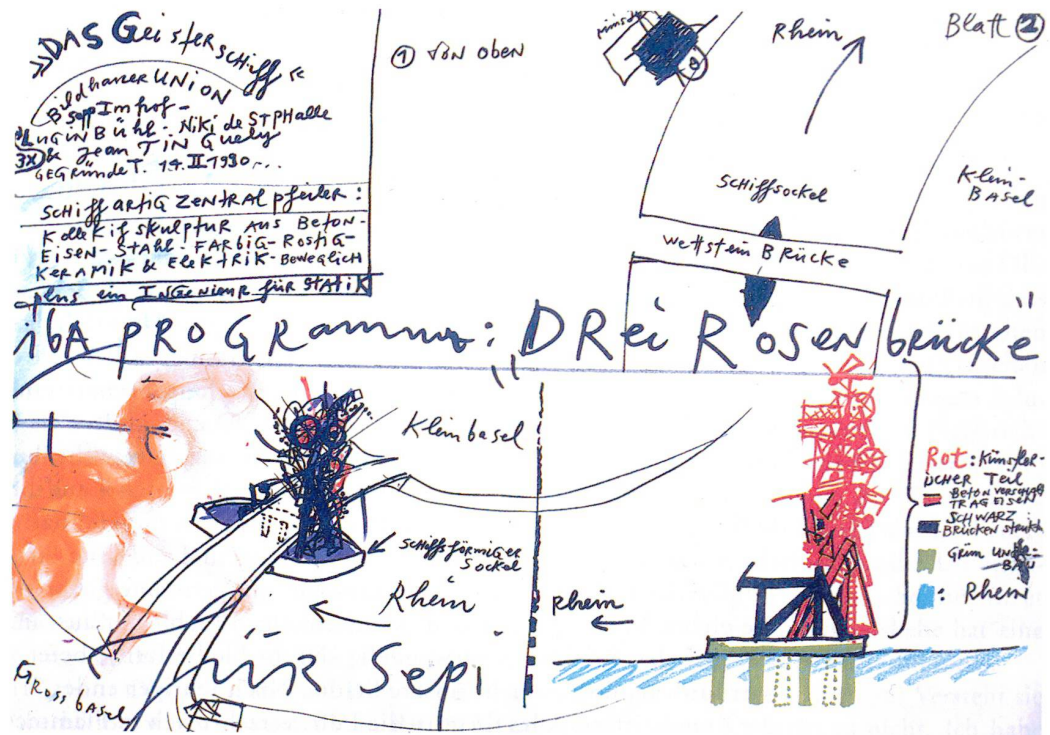 »DAS Geister
schiff«
BildhauerUNiON
B seppImhof-
LuGiNBühl- Niki de STPHalle
3X & Jean TiNGuely
GEGRündeT. 14.II 1980...
SCHiffARTiG ZeNTRAL pfeiler:
KollekTif skulpTuR AUS BeToN-
EiseN- STAHL- FARbiG- RosTiG-
KeRAMiK & ElekTRiK- BeweGlicH
plus ein INGeNieuR füR STATiK
① VON obeN
Rhein
Blatt ②
SCHiffsockel
KleiN-
BASel
WettsteiN BRücke
ibA pROGRamm: "DRei RoseNbRücke"
Kleinbasel
Schiffsförmiger
Sockel
Rhein
Rhein
GRoss basel
füR Sepi
RoT: Künstler-
ischer Teil
BeToN
TRAGEiseN
SCHWARZ
BRücken
GRüN UNTER-
BAU
: Rhein